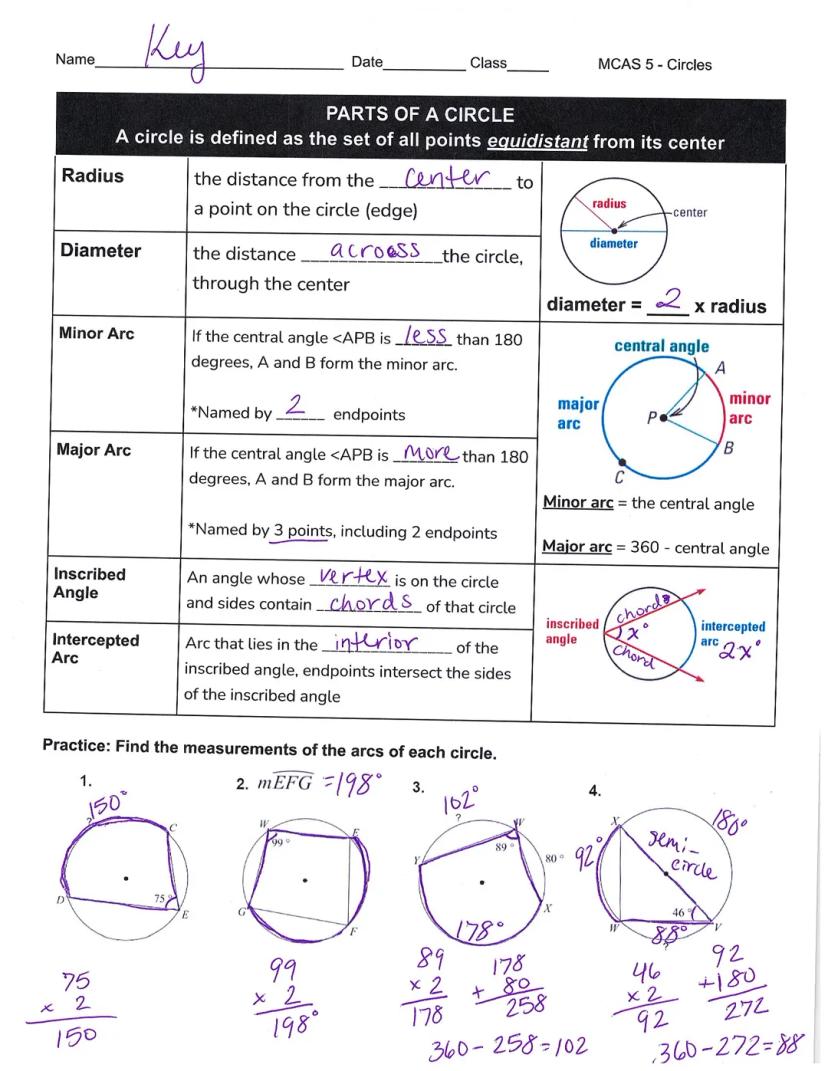 Name Key Date Class MCAS 5 - Circles
PARTS OF A CIRCLE
A circle is defined as the set of all points equidistant from its center
Radius
the distance from the center to
a point on the circle (edge)
radius
center
diameter
diameter = 2 x radius
Diameter
the distance across the circle,
through the center
Minor Arc
If the central angle <APB is less than 180
degrees, A and B form the minor arc.
*Named by 2 endpoints
central angle
A
major
arc
P
minor
arc
B
C
Minor arc = the central angle
Major arc = 360 - central angle
Major Arc
If the central angle <APB is more than 180
degrees, A and B form the major arc.
*Named by 3 points, including 2 endpoints
Inscribed
Angle
An angle whose vertex is on the circle
and sides contain chords of that circle
inscribed
angle
chords
x°
chord
intercepted
arc 2x°
Intercepted
Arc
Arc that lies in the interior of the
inscribed angle, endpoints intersect the sides
of the inscribed angle
Practice: Find the measurements of the arcs of each circle.
1.
150°
?
C
D
75°
E
75
x 2
150
2. mEFG = 198°
W
E
99°
G
F
99
x 2
198°
3.
102°
?
W
89°
Y
80°
X
178°
89
x 2
178
178
+ 80
258
360 - 258 = 102
4.
X
180°
92°
semi-
circle
46°
W
V
88°
?
46
x 2
92
92
+180
272
360 - 272 = 88